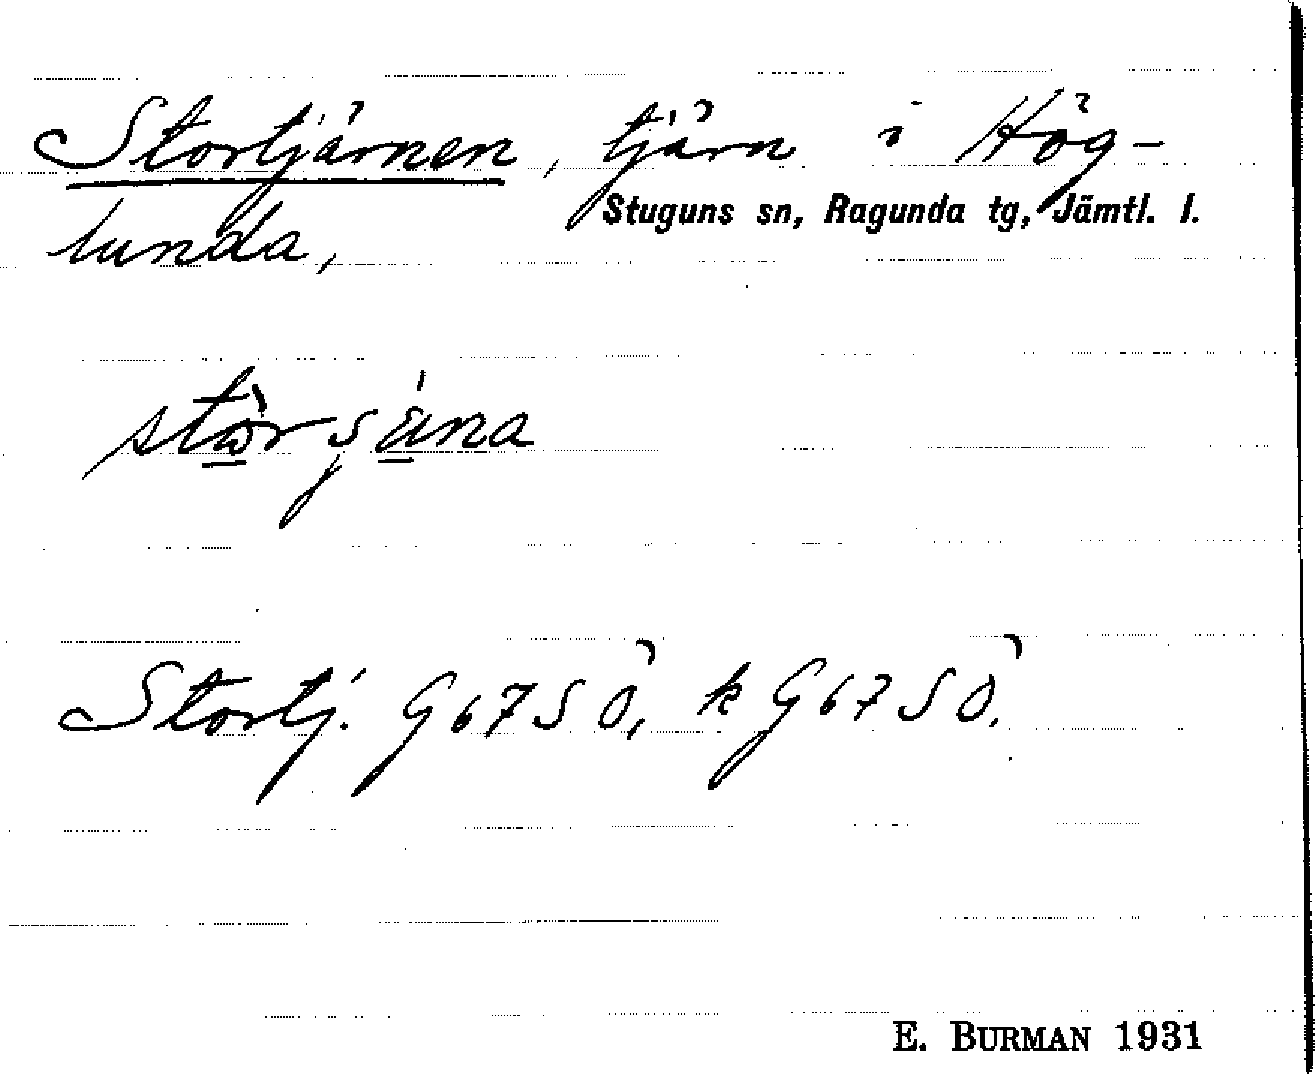 Stortjärnen, tjärn i Hög-
Stuguns sn, Ragunda tg, Jämtl. l.
lunda,
Stortj. G67SÖ, k G67SÖ.
E. BURMAN 1931